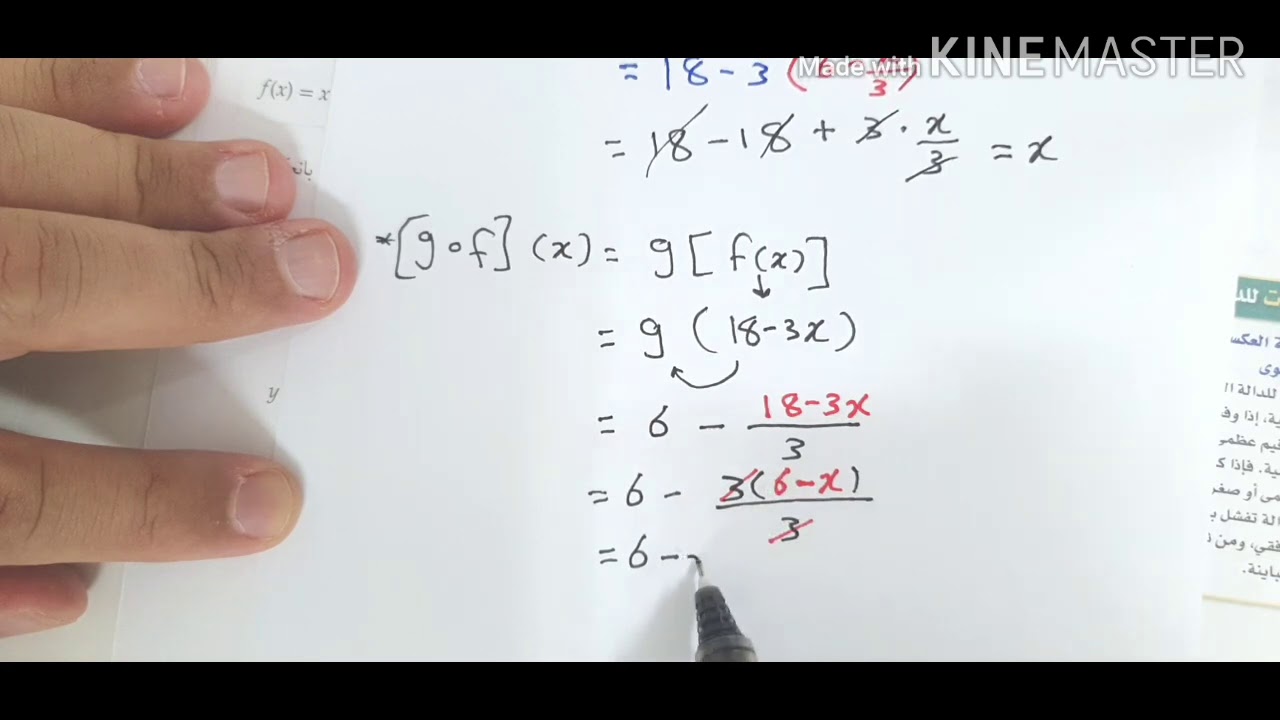 Made with KINEMASTER
f(x) = x
= 18 - 3 (
= 18 - 18 + 3 · x/3 = x
*[g∘f](x) = g[f(x)]
= g(18-3x)
y
= 6 - 18-3x/3
= 6 - 3(6-x)/3
= 6 -
ت للد
ة العكس
وى
للدالة ا
ية، إذا وف
قيم عظمى
ية. فإذا ك
مى أو صغر
الة تفشل ب
فقي، ومن ث
باينة.